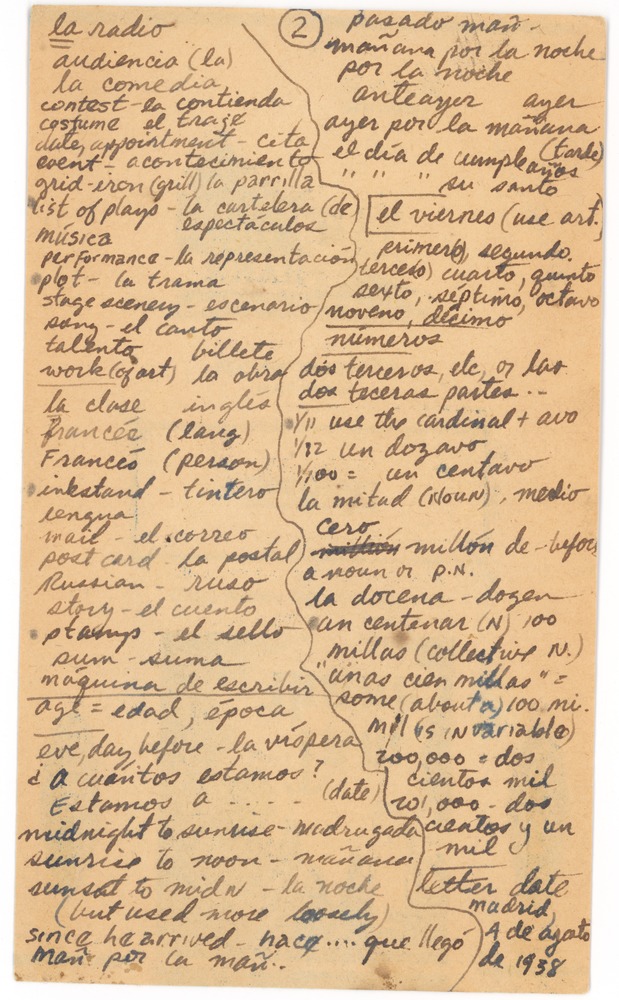 la radio
audiencia (la)
la comedia
contest - la contienda
costume el traze
date, appointment - cita
event - acontecimiento
grid-iron (grill) la parrilla
list of plays - la cartelera (de
espectáculos
música
performance - la representación
plot - la trama
stage scenery - escenario
song - el canto
talento billete
work (of art) la obra
la clase inglés
francés (lang)
Francés (person)
inkstand - tintero
lengua
mail - el correo
post card - la postal
Russian - ruso
story - el cuento
stamps - el sello
sum - suma
máquina de escribir
age = edad, época
eve, day before - la víspera
¿ A cuántos estamos?
Estamos a ..... (date)
midnight to sunrise - madrugada
sunrise to noon - mañana
sunset to midn - la noche
(but used more loosely)
since he arrived - hace .... que llegó
mañ por la mañ..
2
pasado mañ.
mañana por la noche
por la noche
anteayer ayer
ayer por la mañana
(tarde)
el día de cumpleaños
" " " su santo
el viernes (use art.
primero), segundo.
tercero) cuarto, quinto
sexto, séptimo, octavo
noveno, décimo
números
dos terceros, etc, or las
dos teceras partes ..
1/11 use the cardinal + avo
1/12 un dozavo
1/100 = un centavo
la mitad (noun), medio
cero
millón de - before
a noun or P.N.
la docena - dozen
un centenar (N) 100
millas (collective N.)
"unas cien millas" =
some (about a) 100 mi.
mil (is invariable)
200,000 = dos
cientos mil
201,000 - dos
cientos y un
mil
letter date
madrid,
4 de agosto
de 1938